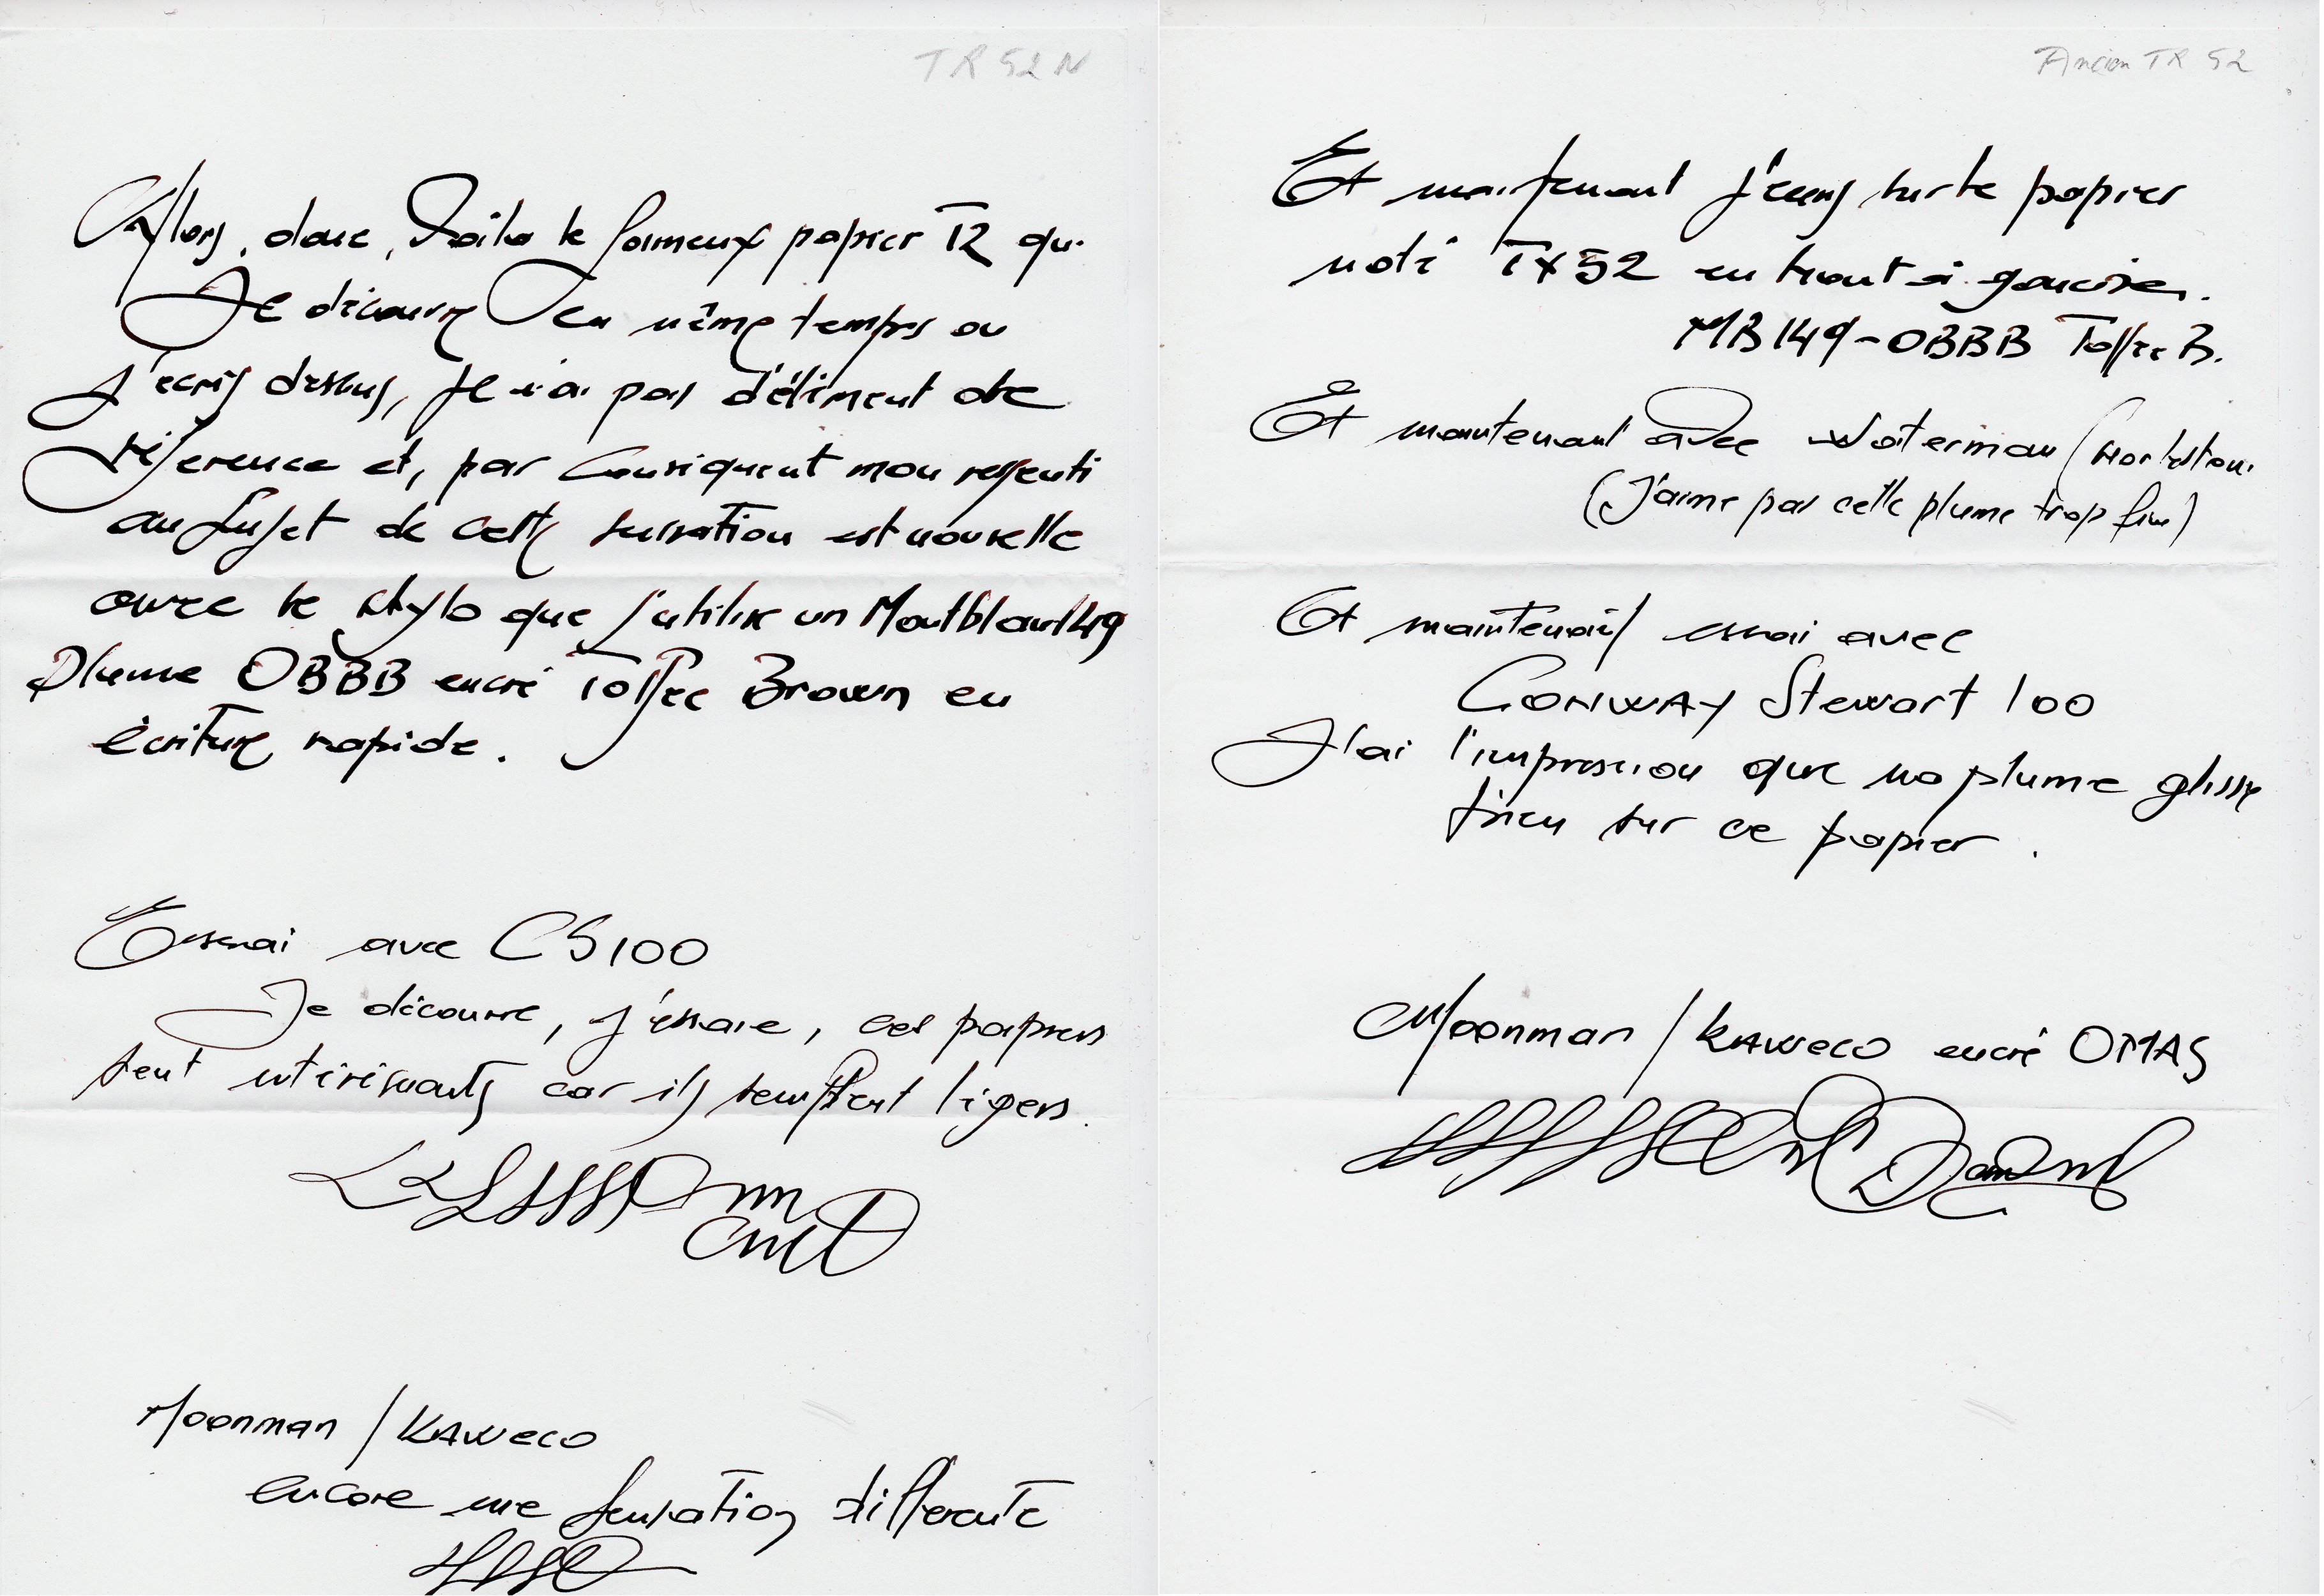 TR 52 N
Alors, donc, Voila le fameux papier T2 que
Je découvre en même temps ou
j'écris dessus, Je n'ai pas d'élément de
référence et, par conséquent mon ressenti
au sujet de cette sensation est nouvelle
avec le stylo que j'utilise un Montblanc 149
Plume OBBB encré Toffee Brown en
écriture rapide.
Essai avec CS100
Je découvre, j'essaie, ces papiers
sont intéressants car ils semblent légers.
Moonman / KAWECO
encore une sensation différente
Ancien TR 52
Et maintenant j'écris sur le papier
noté TX52 en haut à gauche.
MB149-OBBB Toffee B.
Et maintenant avec Waterman (
(J'aime pas cette plume trop fine)
Et maintenant essai avec
CONWAY Stewart 100
J'ai l'impression que ma plume glisse
bien sur ce papier.
Moonman / KAWECO encré OMAS